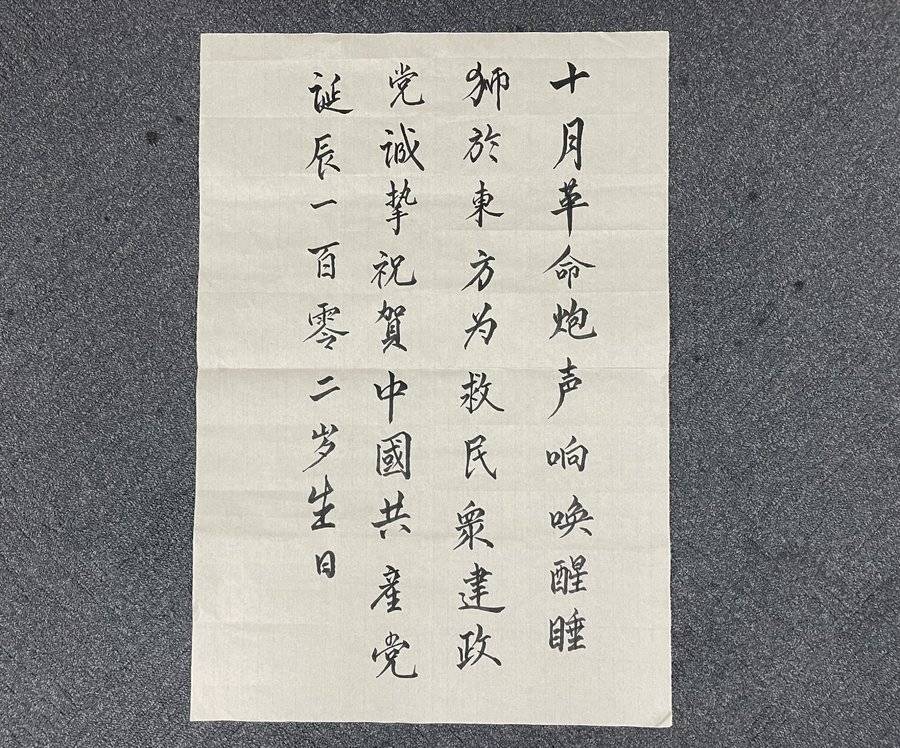 十月革命炮声响唤醒睡
狮於東方为救民衆建政
党诚挚祝賀中國共産党
诞辰一百零二岁生日